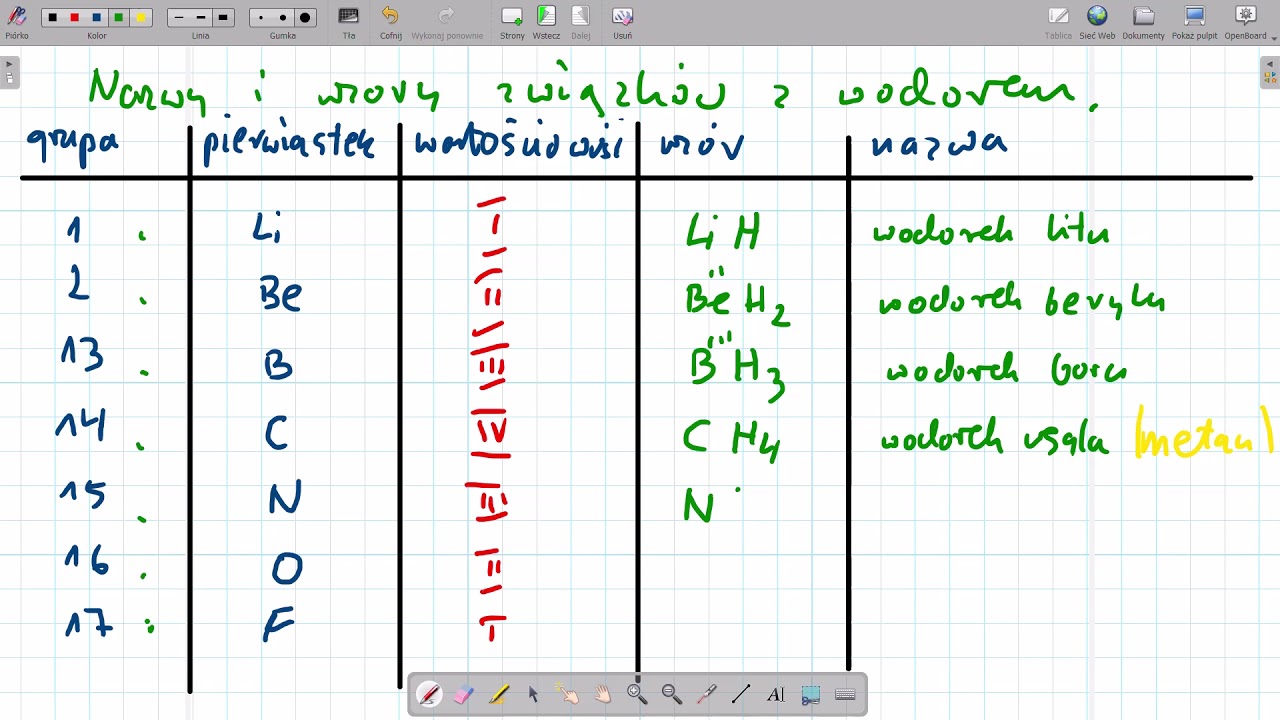 Pióro Kolor Linia Gumka Tła Cofnij Wykonaj ponownie Strony Wstecz Dalej Usuń Tablica Sieć Web Dokumenty Pokaż pulpit OpenBoard
Nazwy i wzory związków z wodorem.
grupa pierwiastek wartościowość wzór nazwa
1 . Li I LiH wodorek litu
2 . Be II Be II H2 wodorek berylu
13 . B III B III H3 wodorek boru
14 . C IV CH4 wodorek węgla (metan)
15 . N III N
16 . O II
17 : F I